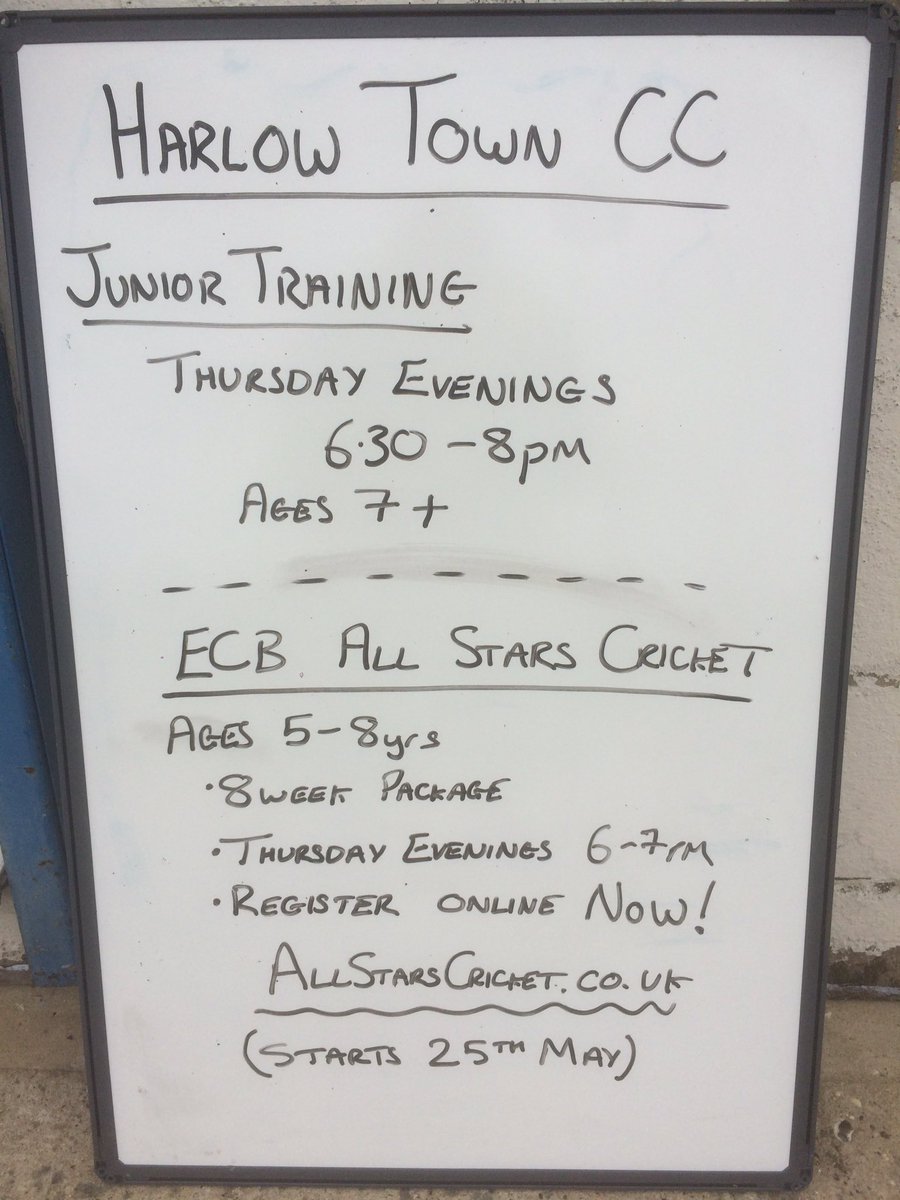 HARLOW TOWN CC
JUNIOR TRAINING
THURSDAY EVENINGS
6.30 - 8PM
AGES 7+
ECB ALL STARS CRICKET
AGES 5-8yrs
• 8 WEEK PACKAGE
• THURSDAY EVENINGS 6-7PM
• REGISTER ONLINE NOW!
ALLSTARSCRICKET.CO.UK
(STARTS 25TH MAY)